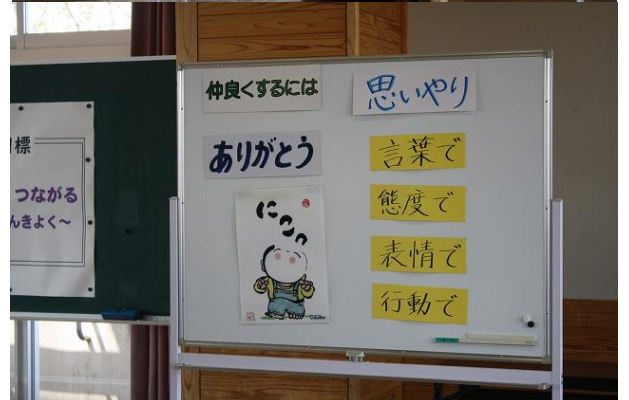 標
つながる
んきよく～
仲良くするには
ありがとう
にこっ
思いやり
言葉で
態度で
表情で
行動で